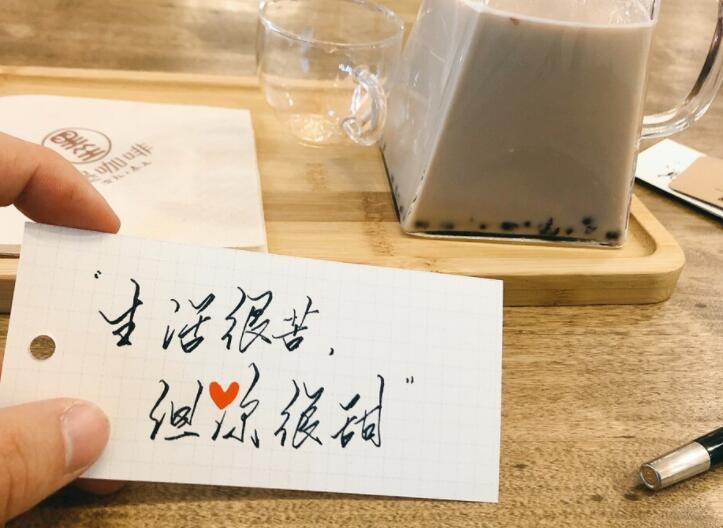 咖啡
“生活很苦，
但你很甜”